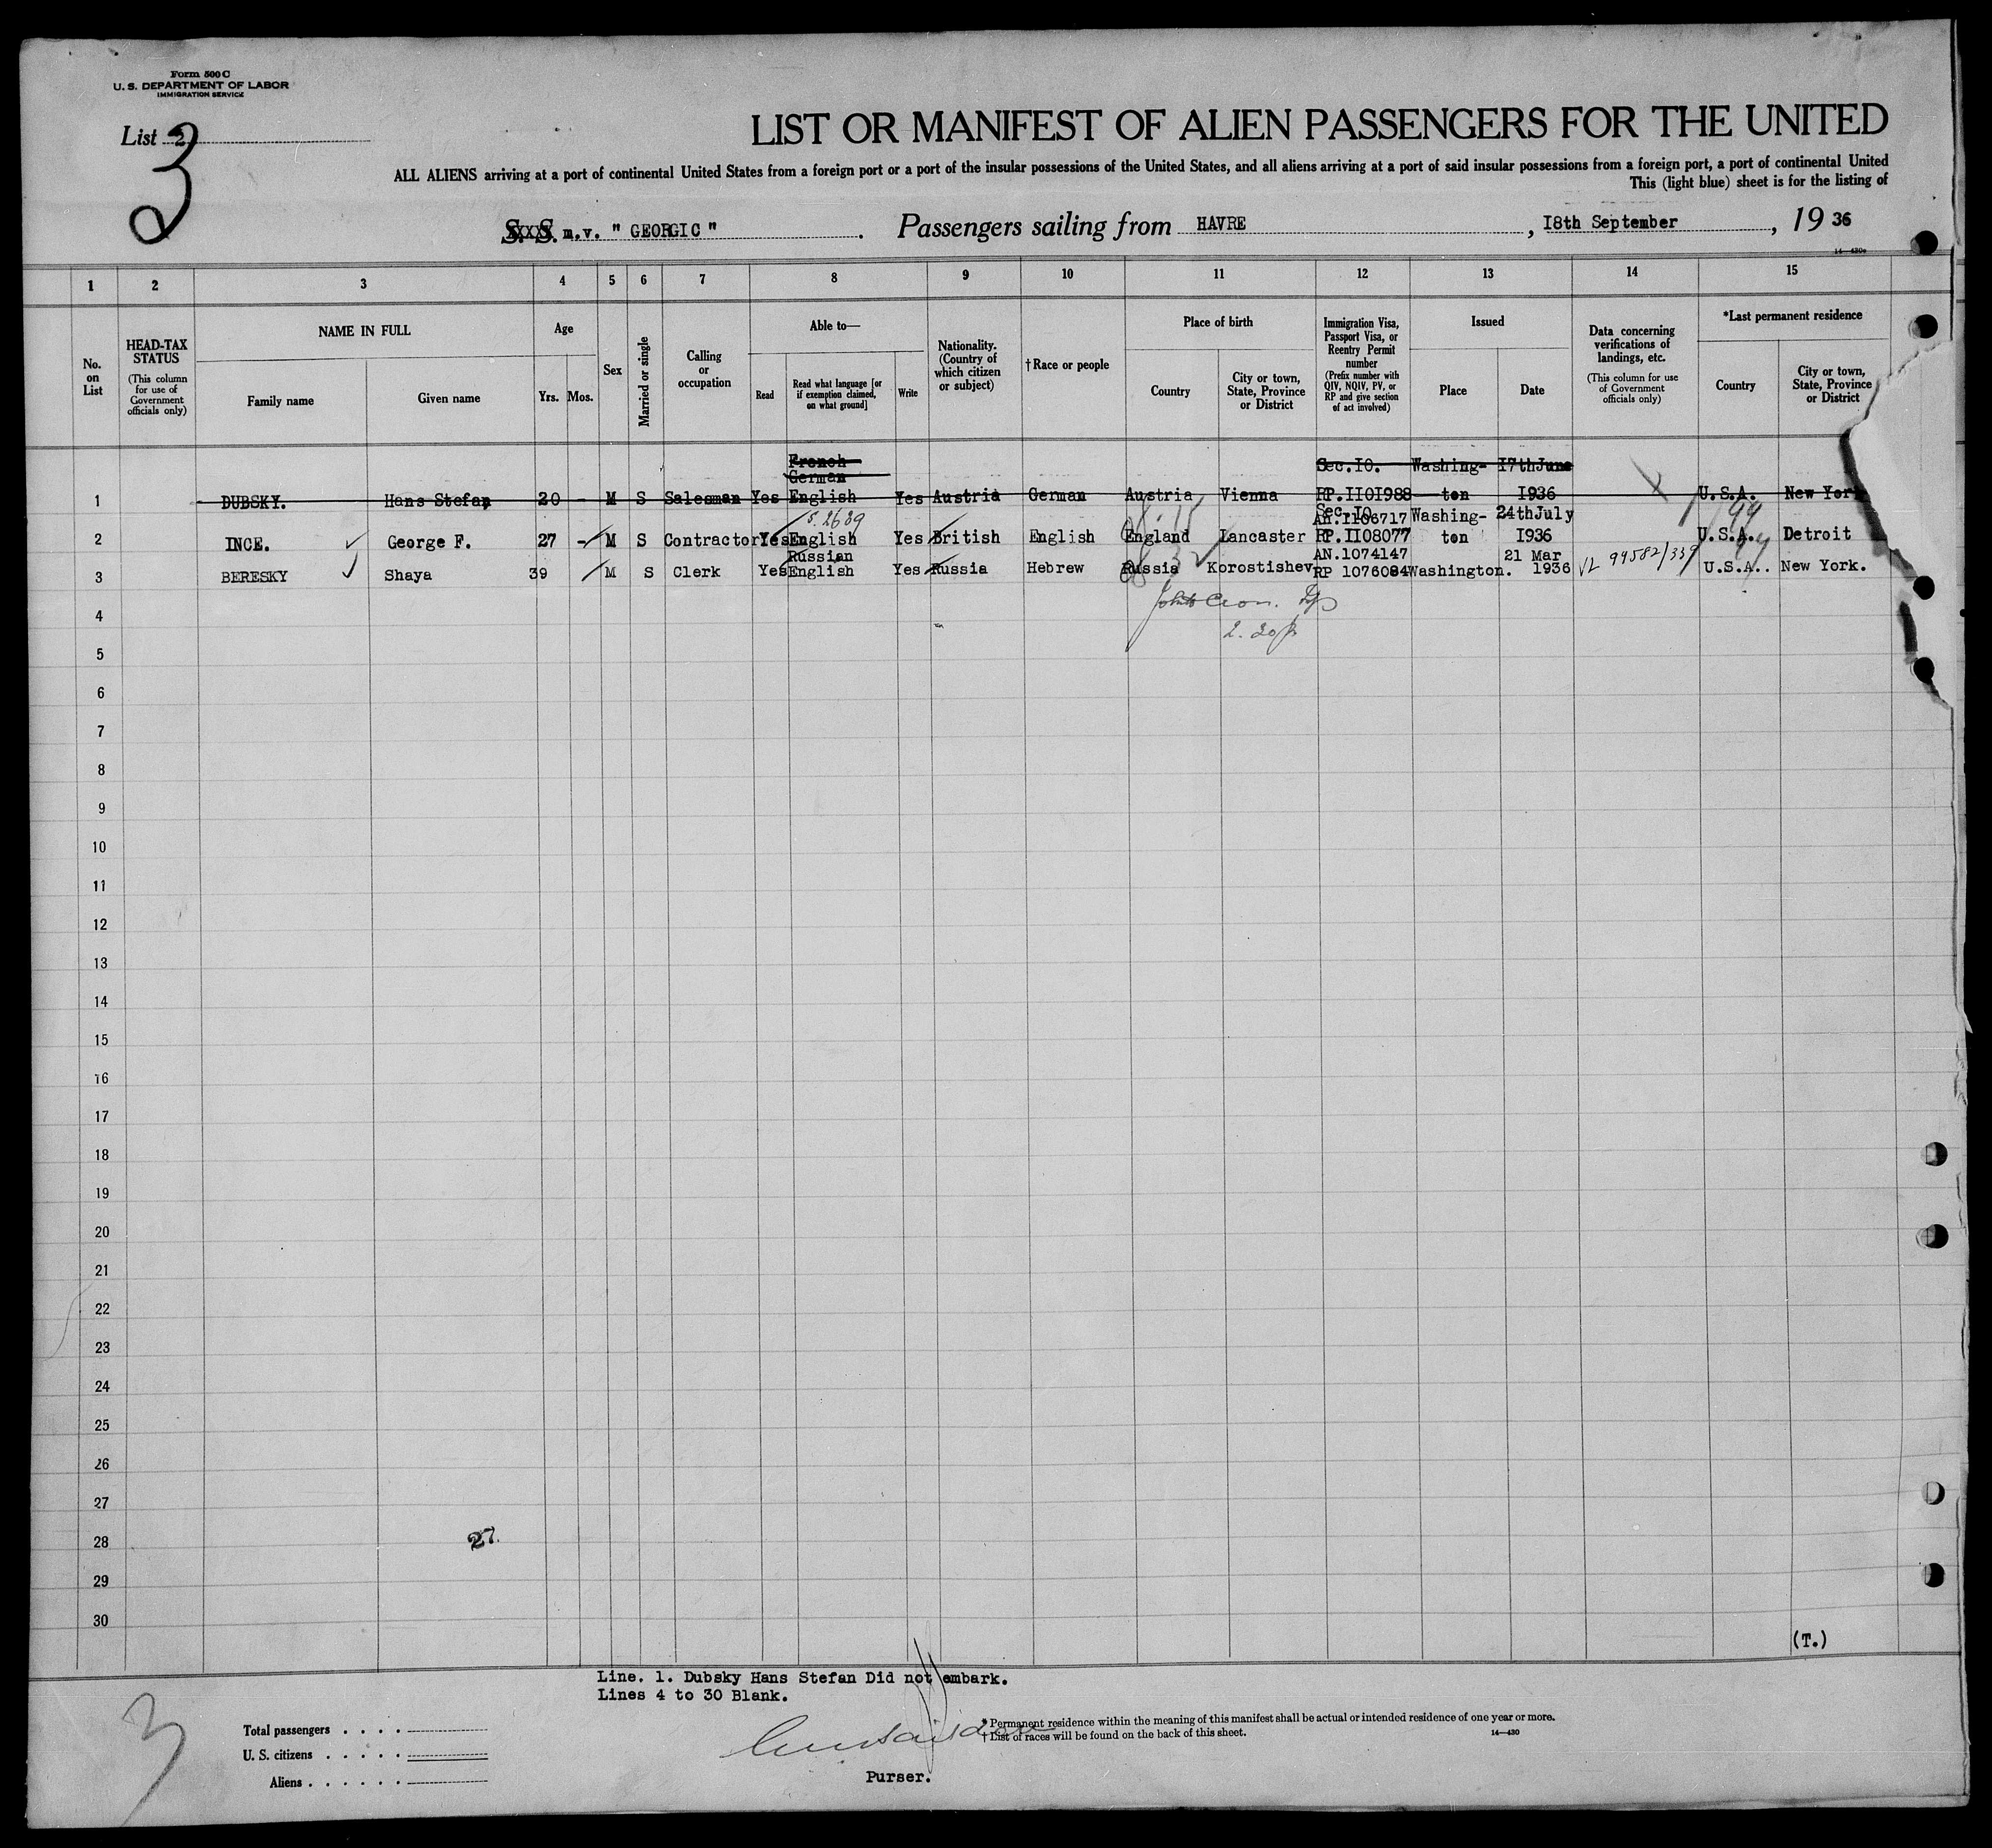 Form 500 C
U. S. DEPARTMENT OF LABOR
IMMIGRATION SERVICE
List 2
3
LIST OR MANIFEST OF ALIEN PASSENGERS FOR THE UNITED
ALL ALIENS arriving at a port of continental United States from a foreign port or a port of the insular possessions of the United States, and all aliens arriving at a port of said insular possessions from a foreign port, a port of continental United
This (light blue) sheet is for the listing of
S. S. m.v. " GEORGIC " . Passengers sailing from HAVRE , I8th September , 19 36
14—430a
1 2 3 4 5 6 7 8 9 10 11 12 13 14 15
No. on List
HEAD-TAX STATUS
(This column for use of Government officials only)
NAME IN FULL
Family name
Given name
Age
Yrs. Mos.
Sex
Married or single
Calling or occupation
Able to—
Read
Read what language [or if exemption claimed, on what ground]
Write
Nationality. (Country of which citizen or subject)
†Race or people
Place of birth
Country
City or town, State, Province or District
Immigration Visa, Passport Visa, or Reentry Permit number
(Prefix number with QIV, NQIV, PV, or RP and give section of act involved)
Issued
Place
Date
Data concerning verifications of landings, etc.
(This column for use of Government officials only)
*Last permanent residence
Country
City or town, State, Province or District
French
German Sec.IO. Washing- I7thJune
1 DUBSKY. Hans Stefan 20 - M S Salesman Yes English Yes Austria German Austria Vienna RP.IIOI988 ton I936 U.S.A. New Yor
5.2639 Sec.IO
AN.II06717 Washing- 24thJuly 99
2 INCE. George F. 27 - M S Contractor Yes English Yes British English England Lancaster RP.II08077 ton I936 U.S.A. Detroit
Russian AN.1074147 21 Mar
3 BERESKY Shaya 39 M S Clerk Yes English Yes Russia Hebrew Russia Korostishev RP 1076084 Washington. 1936 VL 99582/339 U.S.A.. New York.
4
2.30p
5
6
7
8
9
10
11
12
13
14
15
16
17
18
19
20
21
22
23
24
25
26
27
28 27.
29
30
(T.)
Line. 1. Dubsky Hans Stefan Did not embark.
Lines 4 to 30 Blank.
3
Total passengers . . . .
U. S. citizens . . . . .
Aliens . . . . . .
* Permanent residence within the meaning of this manifest shall be actual or intended residence of one year or more.
† List of races will be found on the back of this sheet. 14—430
Purser.